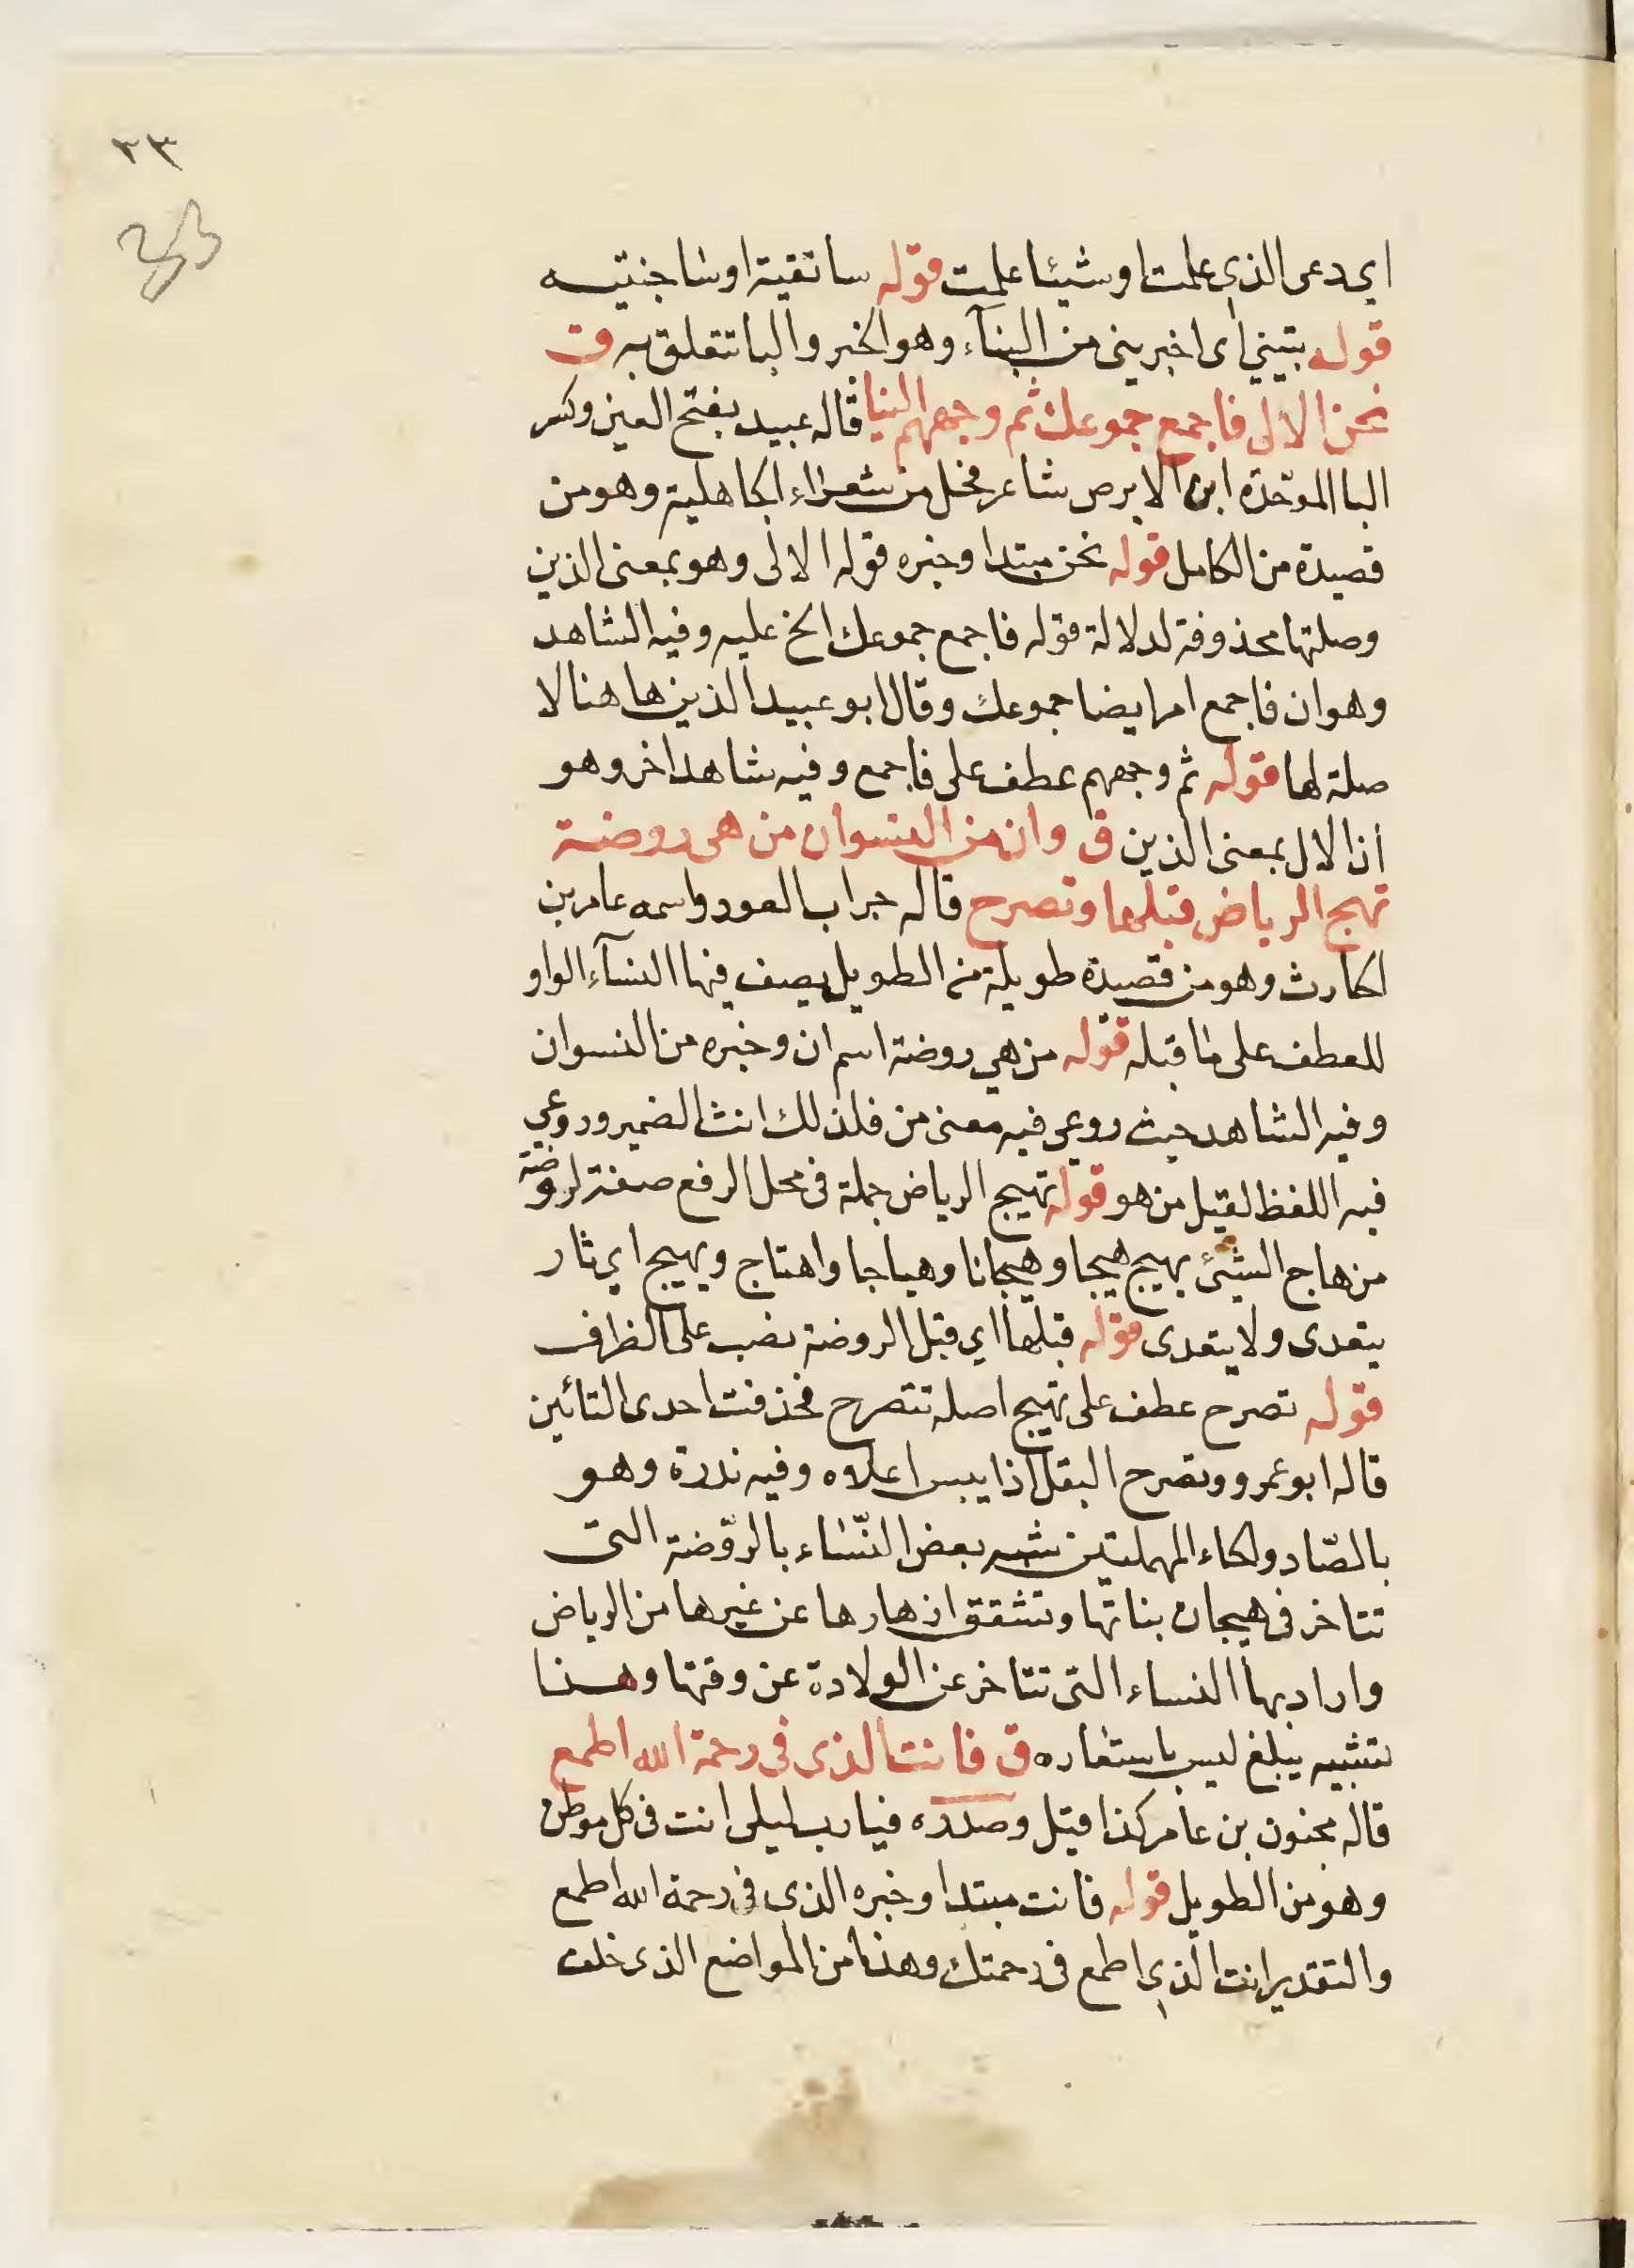 ٣٣
اي دعى الذي علمت او شيئا علمت قوله ساتقيه او ساجنبيه
قوله بتبيني اى اخبريني من البنآء وهو الخبر والبا تتعلق به ق
نحن الالى فاجمع جموعك ثم وجههم الينا قاله عبيد بفتح العين وكسر
البا الموحّدة ابن الابرص شاعر فحل من شعراء الجاهلية وهو من
قصيدة من الكامل قوله نحن مبتدا وخبره قوله الالى وهو بمعنى الذين
وصلتها محذوفة لدلالة قوله فاجمع جموعك الخ عليه وفيه الشاهد
وهو ان فاجمع امر ايضا جموعك وقال ابو عبيد الذين ها هنا لا
صلة لها قوله ثم وجههم عطف على فاجمع وفيه شاهد اخر وهو
ان الال بمعنى الذين ق وان من النسوان من هى روضة
تهيج الرياض قبلها وتصرح قاله جراب العود واسمه عامر بن
الحارث وهو من قصيدة طويلة من الطويل يصف فيها النسآء الواو
للعطف على ما قبله قوله من هي روضة اسم ان وخبره من النسوان
وفيه الشاهد حيث روعي فيه معنى من فلذلك انث الضمير وروعي
فيه اللفظ لقيل من هو قوله تهيج الرياض جملة فى محل الرفع صفة لروضة
من هاج الشئ يهيج هيجا وهيجانا وهياجا واهتاج ويهيج اي ثار
يتعدى ولا يتعدى قوله قبلها اي قبل الروضة نصب على الظرف
قوله تصرح عطف على تهيج اصله تتصرح فحذفت احدى التائين
قاله ابو عمرو وتصرح البقل اذا يبس اعلاه وفيه ندرة وهو
بالصّاد والحاء المهملتين شبه بعض النّساء بالروّضة التى
تتاخر فى هيجان بناتها وتشقق ازهارها عن غيرها من الرياض
واراد بها النساء التى تتاخر عن الولادة عن وقتها وهذا
تشبيه يبلغ ليس باستعاره ق فانت الذى فى رحمة الله اطمع
قاله مجنون بن عامر كذا قيل وصدره فيا رب ليلى انت فى كل موطن
وهو من الطويل قوله فانت مبتدا وخبره الذى فى رحمة الله اطمع
والتقدير انت الذي اطمع فى رحمتك وهذا من المواضع الذى خلف